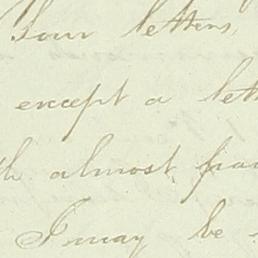 Your letters,
except a
almost
I may be